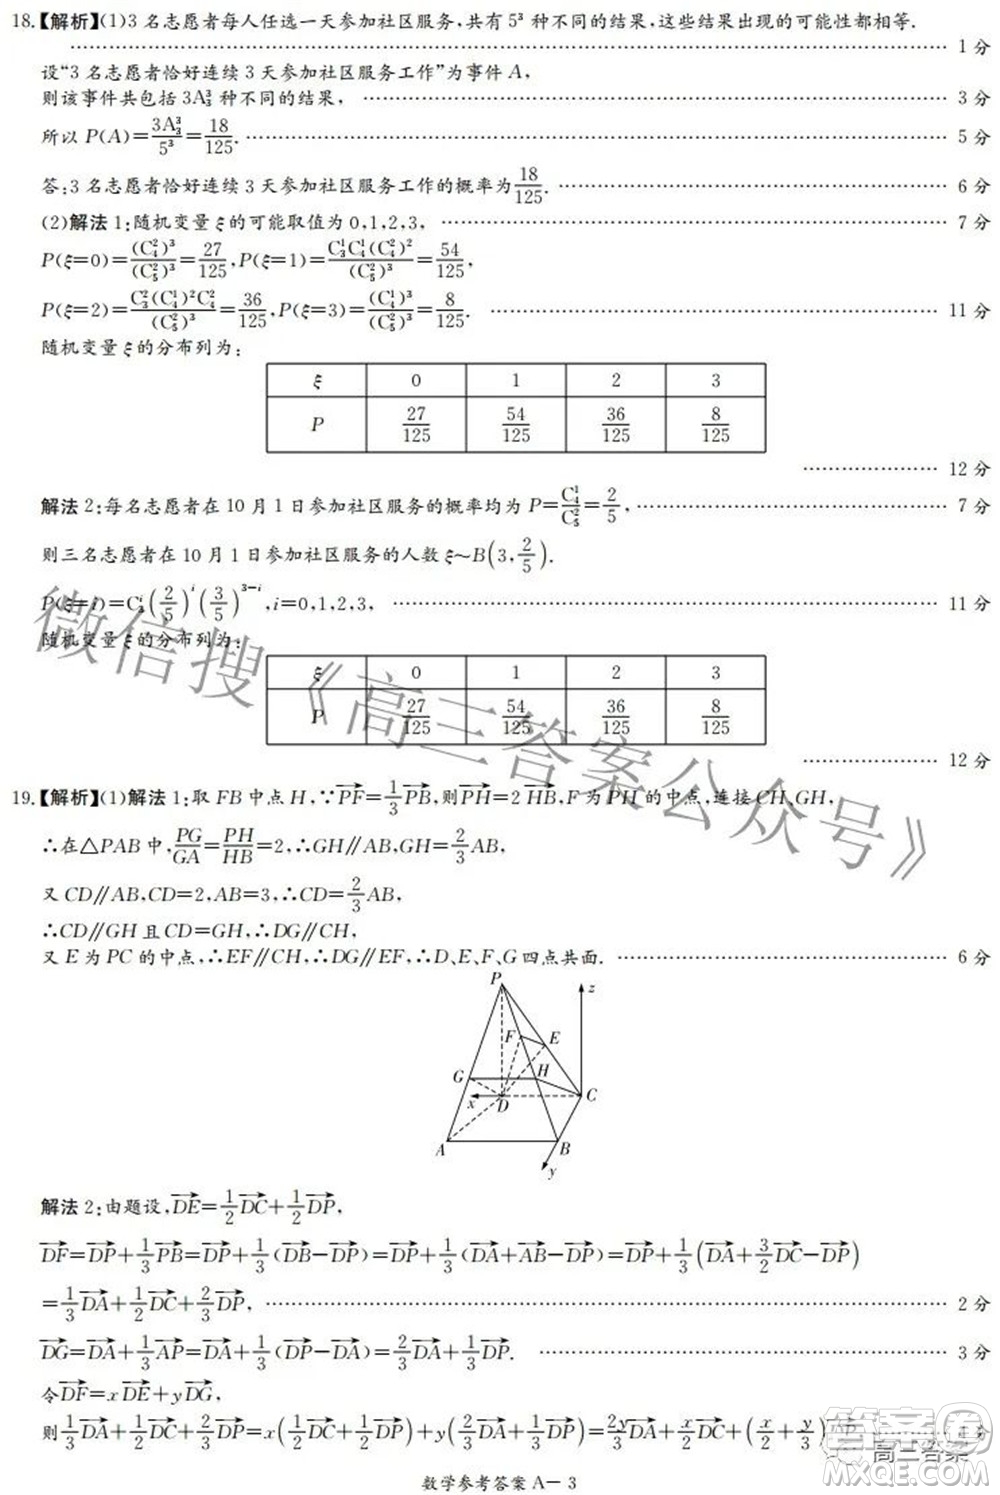 18.【解析】(1)3 名志愿者每人任选一天参加社区服务,共有 5³ 种不同的结果,这些结果出现的可能性都相等.
………… 1 分
设“3 名志愿者恰好连续 3 天参加社区服务工作”为事件 A,
则该事件共包括 3A₃³ 种不同的结果, ………… 3 分
所以 P(A)=3A₃³/5³=18/125. ………… 5 分
答:3 名志愿者恰好连续 3 天参加社区服务工作的概率为18/125. ………… 6 分
(2)解法 1:随机变量 ξ 的可能取值为 0,1,2,3, ………… 7 分
P(ξ=0)=(C₄²)³/(C₅²)³=27/125,P(ξ=1)=C₃¹C₄¹(C₄²)²/(C₅²)³=54/125,
P(ξ=2)=C₃²(C₄¹)²C₄²/(C₅²)³=36/125,P(ξ=3)=(C₄¹)³/(C₅²)³=8/125. ………… 11 分
随机变量 ξ 的分布列为:
ξ 0 1 2 3
P 27/125 54/125 36/125 8/125
………… 12 分
解法 2:每名志愿者在 10 月 1 日参加社区服务的概率均为 P=C₄¹/C₅²=2/5, ………… 7 分
则三名志愿者在 10 月 1 日参加社区服务的人数 ξ~B(3,2/5).
P(ξ=i)=C₃ⁱ(2/5)ⁱ(3/5)³⁻ⁱ,i=0,1,2,3, ………… 11 分
随机变量 ξ 的分布列为:
ξ 0 1 2 3
P 27/125 54/125 36/125 8/125
………… 12 分
19.【解析】(1)解法 1:取 FB 中点 H,∵PF→=1/3PB→,则PH→=2 HB→,F 为 PH 的中点,连接 CH、GH,
∴在△PAB 中,PG/GA=PH/HB=2,∴GH∥AB,GH=2/3AB,
又 CD∥AB,CD=2,AB=3,∴CD=2/3AB,
∴CD∥GH 且 CD=GH,∴DG∥CH,
又 E 为 PC 的中点,∴EF∥CH,∴DG∥EF,∴D、E、F、G 四点共面. ………… 6 分
P
z
F
E
G
H
x
D
C
A
B
y
解法 2:由题设,DE→=1/2DC→+1/2DP→,
DF→=DP→+1/3PB→=DP→+1/3(DB→−DP→)=DP→+1/3(DA→+AB→−DP→)=DP→+1/3(DA→+3/2DC→−DP→)
=1/3DA→+1/2DC→+2/3DP→, ………… 2 分
DG→=DA→+1/3AP→=DA→+1/3(DP→−DA→)=2/3DA→+1/3DP→. ………… 3 分
令DF→=xDE→+yDG→,
则1/3DA→+1/2DC→+2/3DP→=x(1/2DC→+1/2DP→)+y(2/3DA→+1/3DP→)=2y/3DA→+x/2DC→+(x/2+y/3)DP→, ………… 4 分
数学参考答案 A－3
微信搜《高三答案公众号》
答案圈
高三答案
MXQE.COM